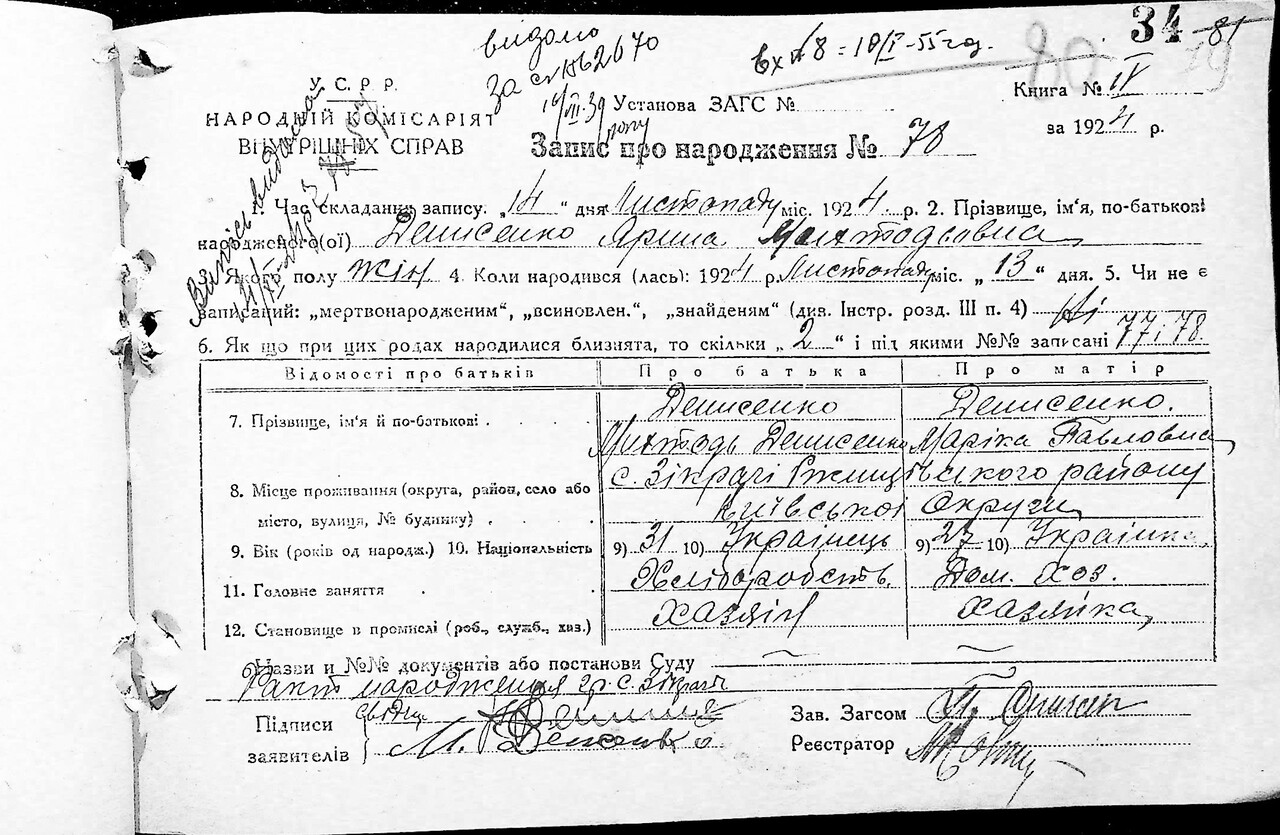 34 81
видано
за ст № 2670
14/VII.39
вх № 8 = 10/I-55 год.
80
79
У. С. Р. Р.
НАРОДНІЙ КОМІСАРІЯТ
ВНУТРІШНІХ СПРАВ
Установа ЗАГС №
Книга № IV
за 1924 р.
Запис про народження № 78
1. Час складання запису. „14“ дня Листопаду міс. 1924. р. 2. Прізвище, ім'я, по-батькові
народженого(ої) Денисенко Ярина Мехтодьовна
Якого полу жін 4. Коли народився (лась): 1924 р. Листопаду міс. „13“ дня. 5. Чи не є
записаний: „мертвонародженим“, „всиновлен.“, „знайденям“ (див. Інстр. розд. III п. 4) Ні
6. Як що при цих родах народилися близнята, то скільки „2“ і під якими №№ записані 77 і 78.
Відомості про батьків Про батька Про матір
7. Прізвище, ім'я й по-батькові Денисенко Денисенко.
Мехтодь Денисенко Маріка Павловна
8. Місце проживання (округа, район, село або с. Зікрачі Ржищівського району
місто, вулиця, № будинку) Київської Округи
9. Вік (років од народж.) 10. Національність 9) 31 10) Українець 9) 27 10) Українка
11. Головне заняття Хліборобств. Дом. хоз.
12. Становище в промислі (роб., служб., хаз.) хазяїн хазяйка
Назви и №№ документів або постанови Суду
Факт народження гр. с. Зікрачі
Підписи свідки
заявителів М.
Зав. Загсом
Реєстратор